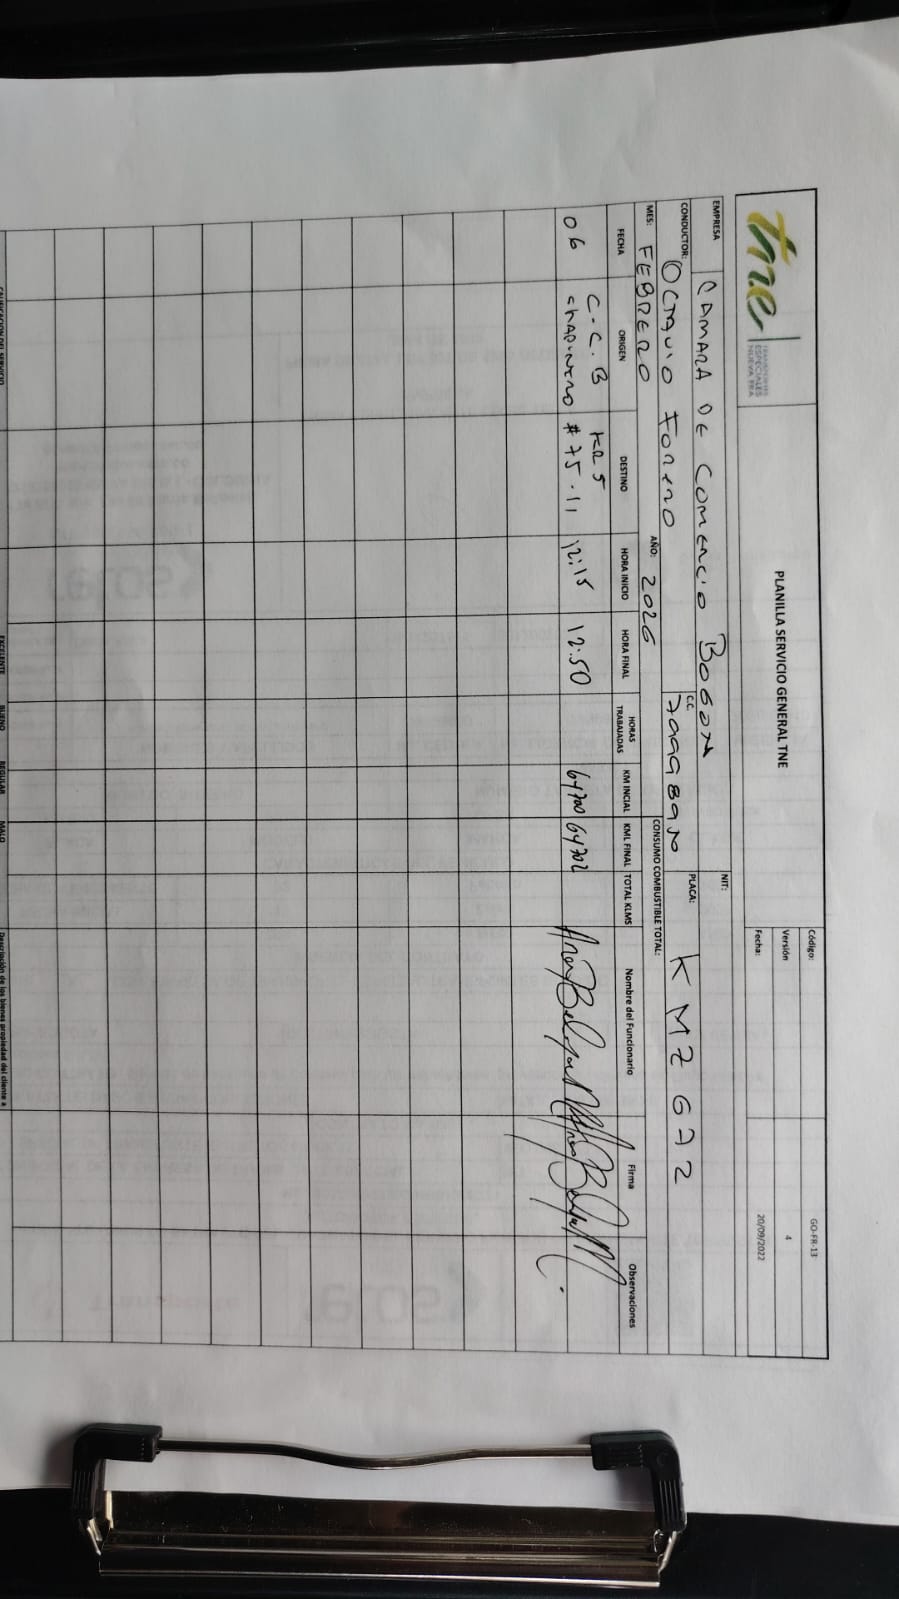 tne TRANSPORTES ESPECIALES NUEVA ERA
PLANILLA SERVICIO GENERAL TNE
Código: GO-FR-13
Versión 4
Fecha: 20/09/2022
EMPRESA CAMARA DE COMERCIO BOGOTA NIT:
CONDUCTOR: OCTAVIO FORERO C.C. PLACA: KMZ 672
MES: FEBRERO AÑO: 2026 CONSUMO COMBUSTIBLE TOTAL:
FECHA ORIGEN DESTINO HORA INICIO HORA FINAL HORAS TRABAJADAS KM INCIAL KML FINAL TOTAL KLMS Nombre del Funcionario Firma Observaciones
06 C.C.B chapinero KR 5 # 75-11 12:15 12:50 64700 64702
CALIFICACION DEL SERVICIO EXCELENTE BUENO REGULAR MALO Descripción de los bienes propiedad del cliente a